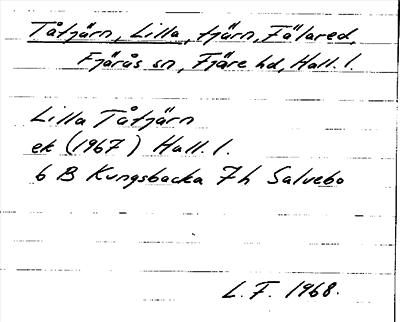 Tåtjärn, Lilla, tjärn, Fälared,
Fjärås sn, Fjäre hd, Hall. l.
Lilla Tåtjärn
ek (1967) Hall. l.
6 B Kungsbacka 7 h Salvebo
L. F. 1968.